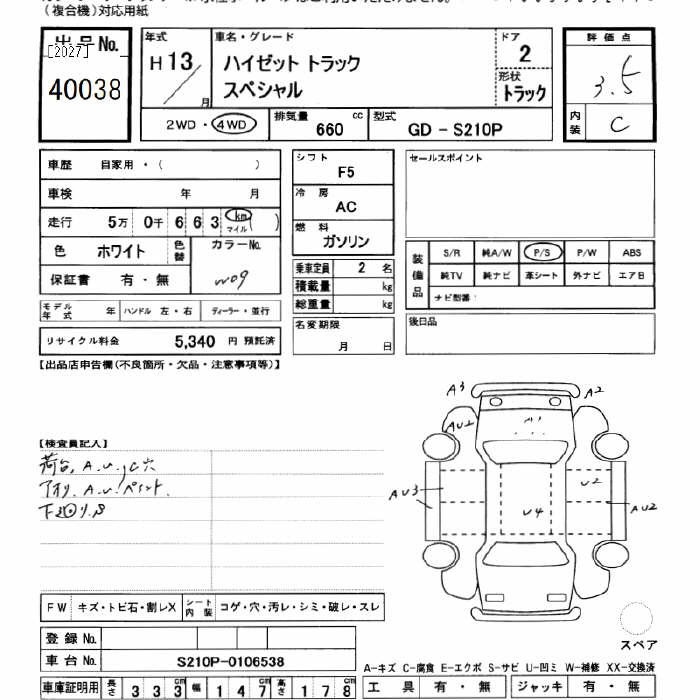 (複合機)対応用紙
出品No.
[2027]
40038
年式
H 13 / 月
車名・グレード
ハイゼット トラック
スペシャル
ドア
2
形状
トラック
2WD・4WD
排気量 660 cc
型式 GD - S210P
評価点
3.5
内装
C
車歴 自家用・( )
車検 年 月
走行 5万 0千 6 6 3 km マイル ( )
色 ホワイト
色替
カラーNo.
W09
保証書 有・無
モデル年式 年
ハンドル 左・右
ディーラー・並行
リサイクル料金 5,340 円 預託済
シフト
F5
冷房
AC
燃料
ガソリン
乗車定員 2 名
積載量 kg
総重量 kg
名変期限
月 日
セールスポイント
装備品
S/R 純A/W P/S P/W ABS
純TV 純ナビ 革シート 外ナビ エアB
ナビ型番:
後日品
【出品店申告欄(不良箇所・欠品・注意事項等)】
【検査員記入】
荷台, A.U, C穴
アオリ, A.U. ペイント.
下回り.S
A3
A2
AU2
A1
AU3
U2
U4
AU2
スペア
FW キズ・トビ石・割レX
シート内装 コゲ・穴・汚レ・シミ・破レ・スレ
登録No.
車台No. S210P-0106538
車庫証明用 長さ 3 3 3 cm 幅 1 4 7 cm 高さ 1 7 8 cm
A-キズ C-腐食 E-エクボ S-サビ U-凹ミ W-補修 XX-交換済
工具 有・無
ジャッキ 有・無